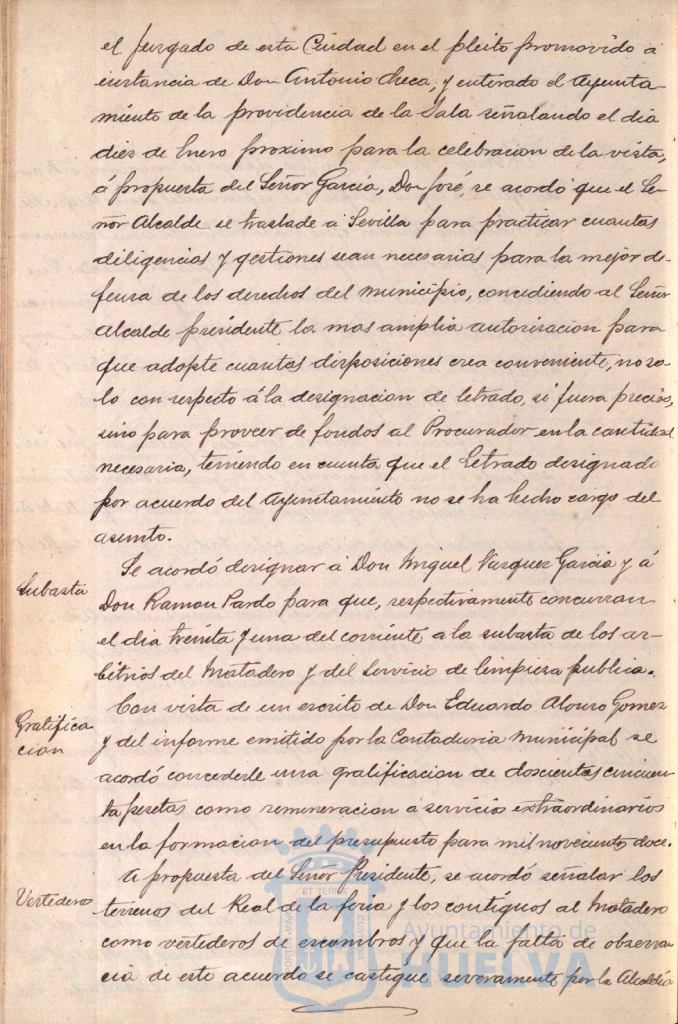 el Juzgado de esta Ciudad en el pleito promovido á
instancia de Don Antonio Checa, y enterado el Ayunta-
miento de la providencia de la Sala señalando el dia
diez de Enero proximo para la celebracion de la vista,
á propuesta del Señor Garcia, Don José, se acordó que el Se-
ñor Alcalde se traslade á Sevilla para practicar cuantas
diligencias y gestiones sean necesarias para la mejor de-
fensa de los derechos del municipio, concediendo al Señor
Alcalde presidente la mas amplia autorizacion para
que adopte cuantas disposiciones crea conveniente, no so-
lo con respecto á la designacion de letrado, si fuera preciso,
sino para proveer de fondos al Procurador en la cantidad
necesaria, teniendo en cuenta que el Letrado designado
por acuerdo del Ayuntamiento no se ha hecho cargo del
asunto.
Subasta
Se acordó designar á Don Miguel Vazquez Garcia y á
Don Ramon Pardo para que, respectivamente concurran
el dia treinta y una del corriente a la subasta de los ar-
bitrios del Matadero y del Servicio de limpieza publica.
Gratifica
cion
Con vista de un escrito de Don Eduardo Alonso Gomez
y del informe emitido por la Contaduria Municipal se
acordó concederle una gratificacion de doscientas cincuen-
ta pesetas como remuneracion á servicios extraordinarios
en la formacion del presupuesto para mil novecientos doce.
Vertederos
A propuesta del Señor Presidente, se acordó señalar los
terrenos del Real de la feria y los contiguos al Matadero
como vertederos de escombros y que la falta de observan
cia de este acuerdo se castigue severamente por la Alcaldia
Ayuntamiento de
HUELVA